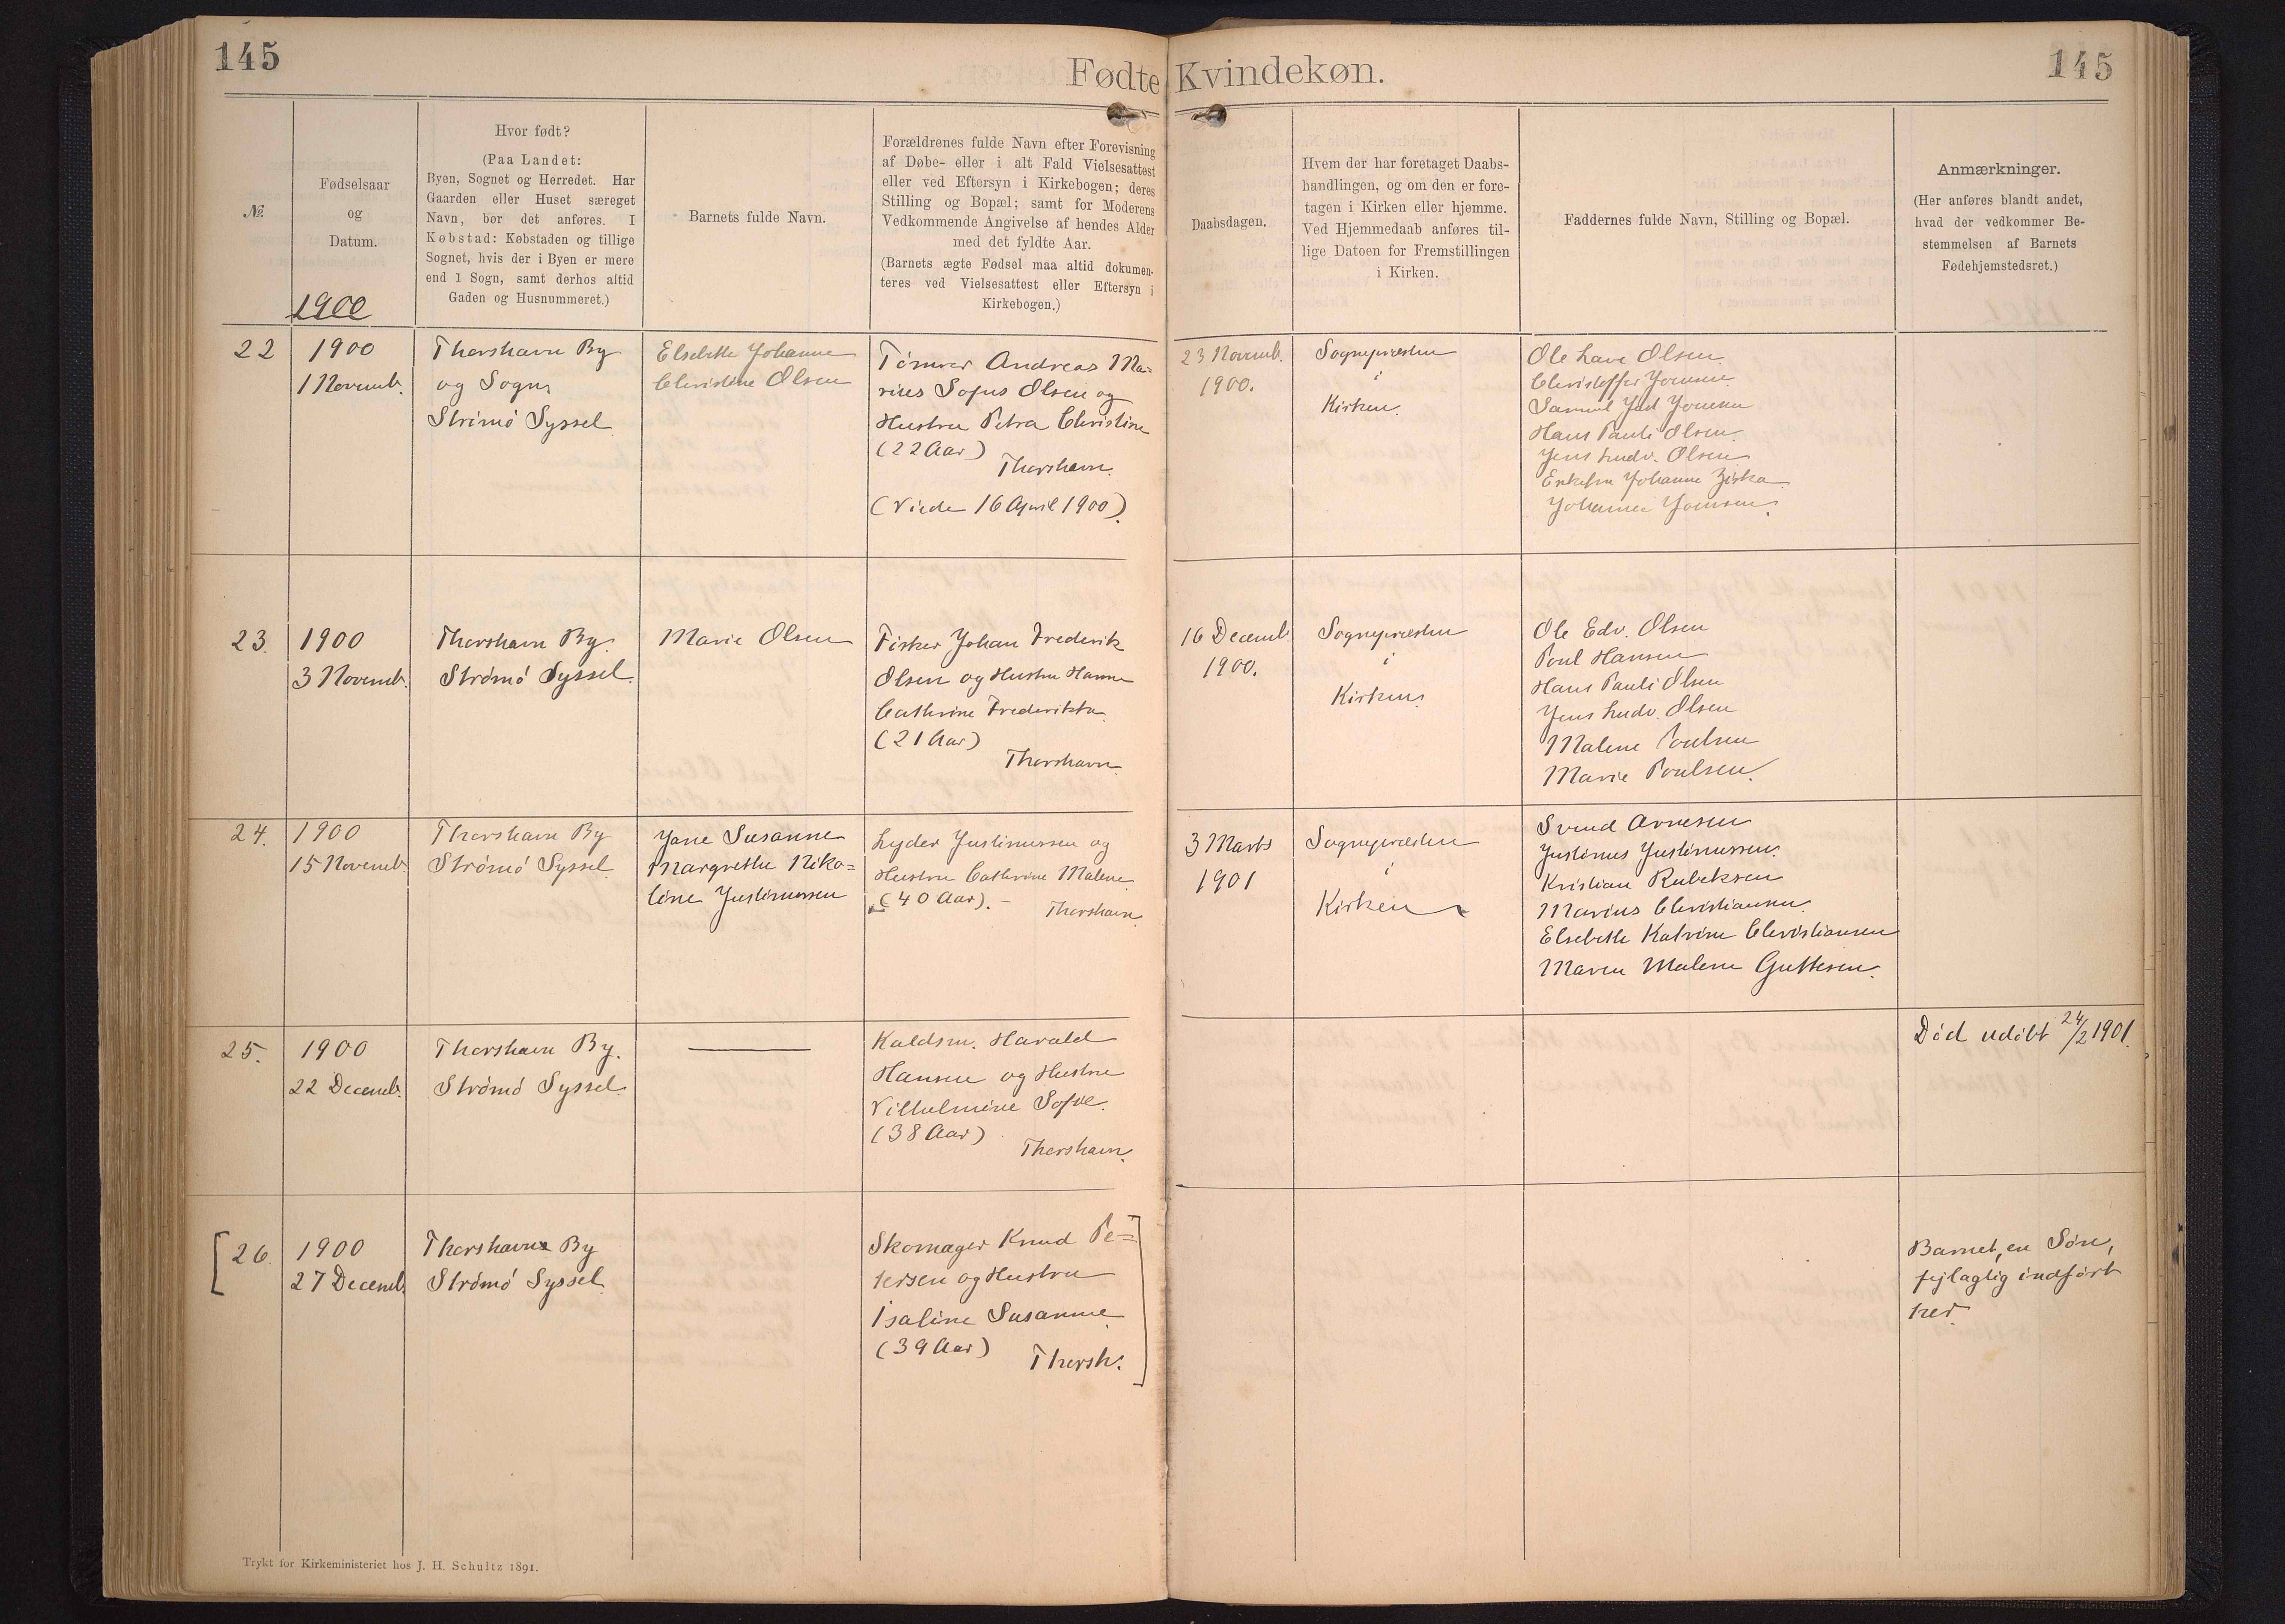 145
145
Fødte Kvindekøn.
№
Fødselsaar
og
Datum.
1900
Hvor født?
(Paa Landet:
Byen, Sognet og Herredet. Har
Gaarden eller Huset særeget
Navn, bør det anføres. I
Købstad: Købstaden og tillige
Sognet, hvis der i Byen er mere
end 1 Sogn, samt derhos altid
Gaden og Husnummeret.)
Barnets fulde Navn.
Forældrenes fulde Navn efter Forevisning
af Døbe- eller i alt Fald Vielsesattest
eller ved Eftersyn i Kirkebogen; deres
Stilling og Bopæl; samt for Moderens
Vedkommende Angivelse af hendes Alder
med det fyldte Aar.
(Barnets ægte Fødsel maa altid dokumen-
teres ved Vielsesattest eller Eftersyn i
Kirkebogen.)
Daabsdagen.
Hvem der har foretaget Daabs-
handlingen, og om den er fore-
tagen i Kirken eller hjemme.
Ved Hjemmedaab anføres til-
lige Datoen for Fremstillingen
i Kirken.
Faddernes fulde Navn, Stilling og Bopæl.
Anmærkninger.
(Her anføres blandt andet,
hvad der vedkommer Be-
stemmelsen af Barnets
Fødehjemstedsret.)
22
1900
1 Novemb.
Thorshavn By
og Sogn,
Strömö Syssel
Elsebeth Johanne
Christine Olsen
Tömrer Andreas Ma=
rius Sofus Olsen og
Hustru Petra Christine
(22 Aar)
Thorshavn.
(Viede 16 April 1900).
23 Novemb.
1900.
Sognepræsten
i
Kirken.
Ole Lave Olsen
Christoffer Joensen
Samuel Joensen
Hans Pauli Olsen.
Jens Ludv. Olsen
Enkefru Johanne Ziska
Johanne Joensen.
23.
1900
3 Novemb.
Thorshavn By.
Strömö Syssel.
Marie Olsen
Fisker Johan Frederik
Olsen og Hustru Hanne
Cathrine Frederikke
(21 Aar)
Thorshavn.
16 Decemb
1900.
Sognepræsten
i
Kirken.
Ole Edv. Olsen
Poul Hansen
Hans Pauli Olsen
Jens Ludv. Olsen
Malene Poulsen
Marie Poulsen.
24.
1900
15 Novemb.
Thorshavn By
Strömö Syssel.
Jane Susanne
Margrethe Niko=
line Justinussen
Lyder Justinussen og
Hustru Cathrine Malene
(40 Aar). –
Thorshavn.
3 Marts
1901
Sognepræsten
i
Kirken
Svend Arnesen
Justinus Justinussen.
Kristian Rubeksen
Marius Christiansen.
Elsebeth Katrine Christiansen
Maren Malene Guttesen.
25.
1900
22 Decemb.
Thorshavn By.
Strömö Syssel.
Kaldsm. Harald
Hansen og Hustru
Vilhelmine Sofie.
(38 Aar)
Thorshavn.
Död udöbt 24/2 1901.
[26.
1900
27 Decemb.
Thorshavns By
Strömö Syssel.
Skomager Knud Pe=
tersen og Hustru
Isaline Susanne
(39 Aar)
Thorsh.]
Barnet, en Sön,
fejlagtig indfört
her.
Trykt for Kirkeministeriet hos J. H. Schultz 1891.